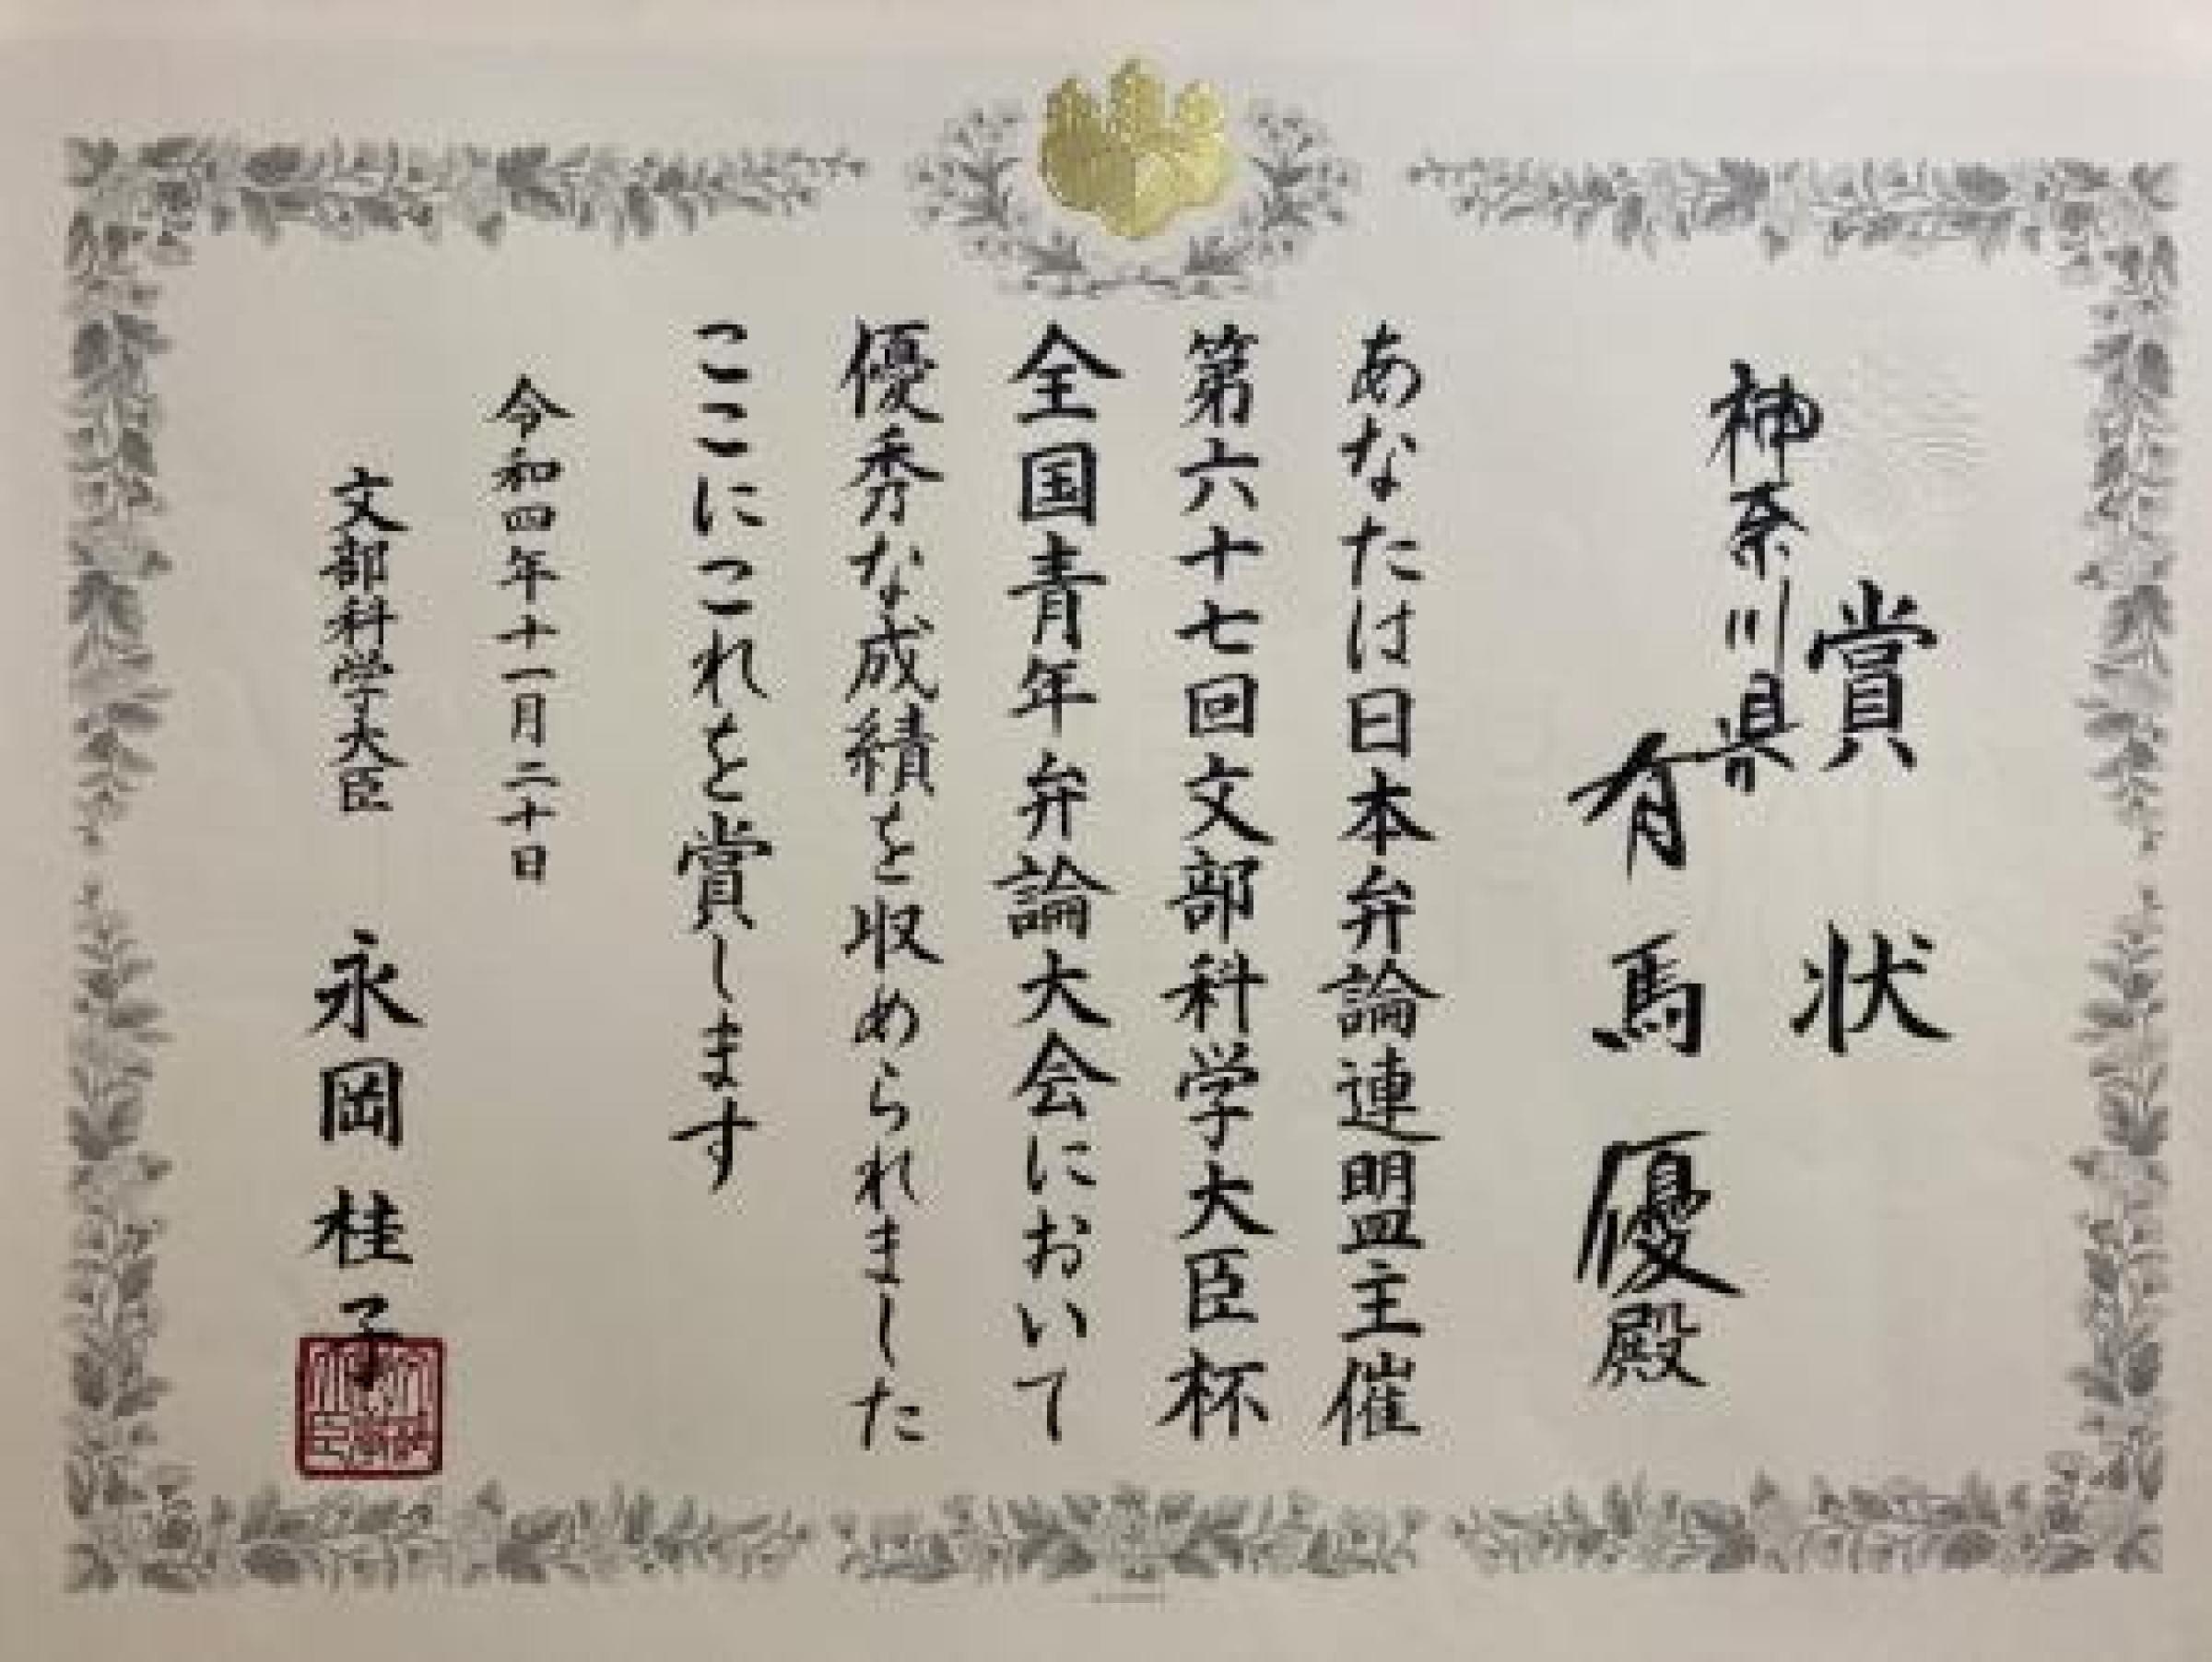 賞状
神奈川県
有馬優殿
あなたは日本弁論連盟主催
第六十七回文部科学大臣杯
全国青年弁論大会において
優秀な成績を収められました
ここにこれを賞します
令和四年十一月二十日
文部科学大臣 永岡桂子